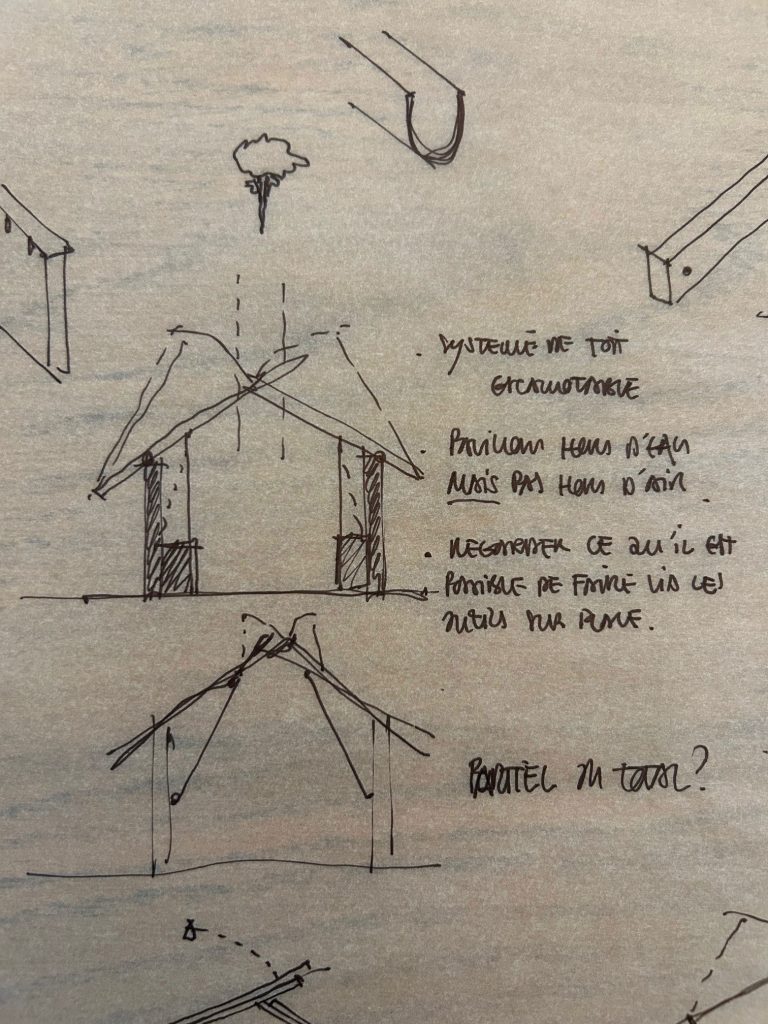 . SYSTEME DE TOIT
ESCAMOTABLE
. PAVILLON HORS D'EAU
MAIS PAS HORS D'AIR.
. REGARDER CE QU'IL EST
POSSIBLE DE FAIRE VIA LES
OUTILS SUR PLACE.
PARTIEL OU TOTAL?